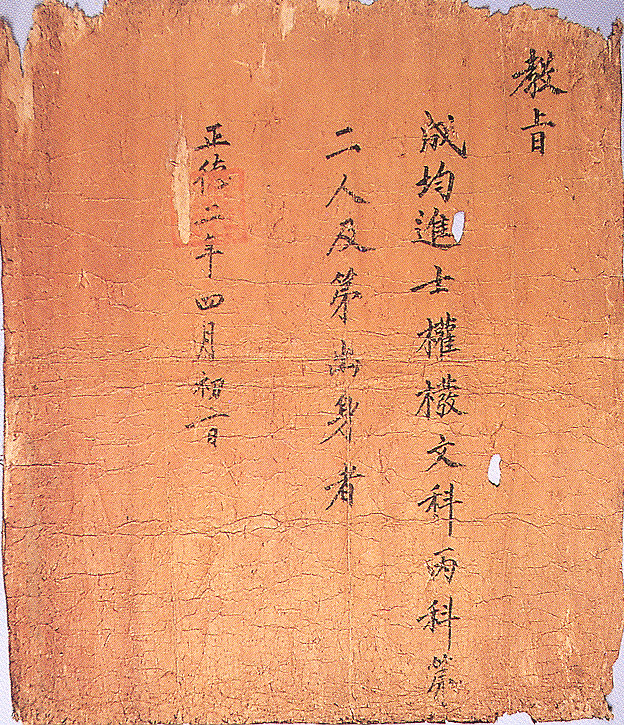 敎旨
成均進士權橃文科丙科第
二人及第出身者
正德二年四月初一日